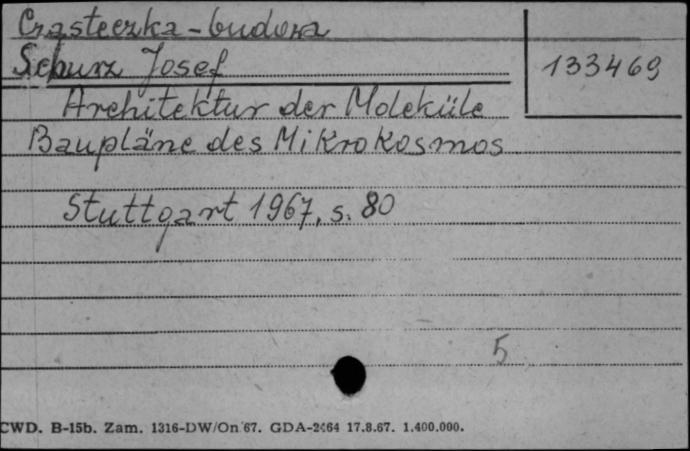 Cząsteczka - budowa
Schurz Josef
133469
Architektur der Moleküle
Baupläne des Mikrokosmos
Stuttgart 1967, s. 80
5
CWD. B-15b. Zam. 1316-DW/On 67. GDA-2464 17.8.67. 1.400.000.